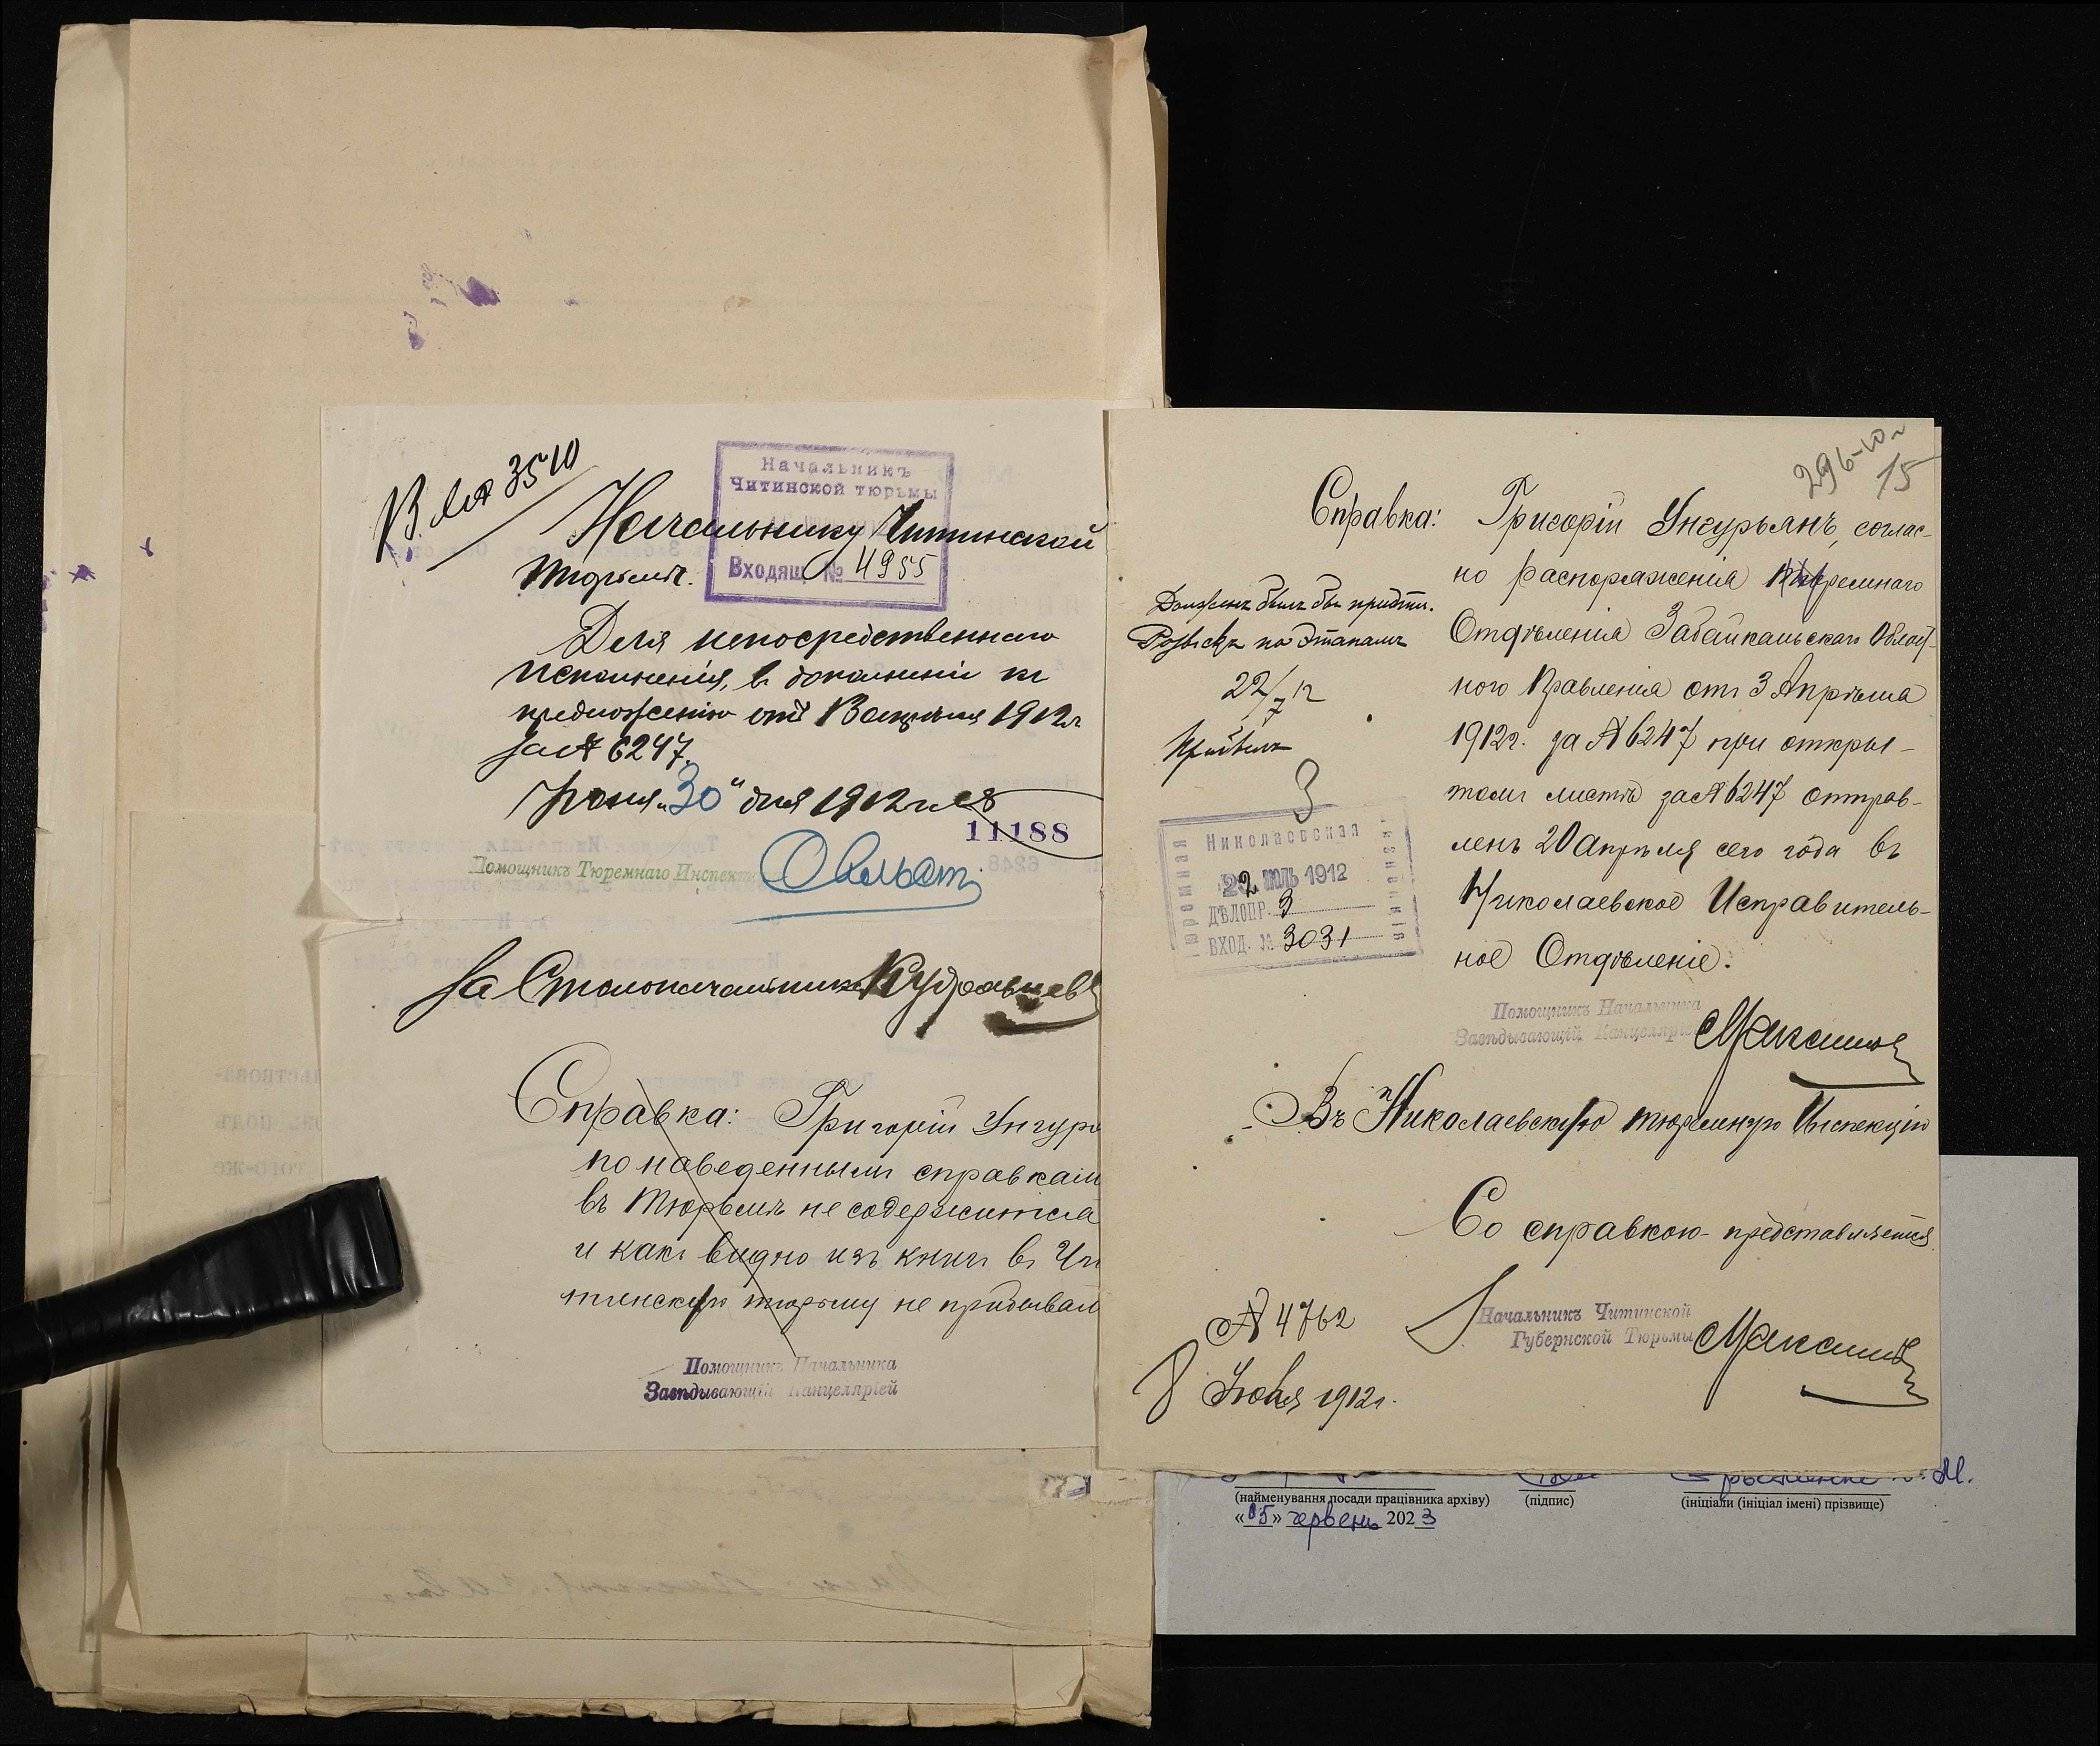 В. № 3510
Начальникъ
Читинской тюрьмы
Входящ № 4955
Начальнику Читинской
тюрьмы.
Для непосредственнаго
исполненія, въ дополненіи къ
предложенію отъ 3 апрѣля 1912 г
за № 6247.
Іюня „30“ дня 1912 г. №
11188
Помощникъ Тюремнаго Инспект
За Столоначальника Кудрявцевъ
Справка: Григорій Унгурь
по наведеннымъ справкам
въ тюрьмѣ не содержится
и какъ видно изъ книгъ въ Чи
тинскую тюрьму не прибывал
Помощникъ Начальника
Завѣдывающій Канцеляріей
296-10
15
Справка: Григорій Унгурьянъ, соглас-
но распоряженія Тюремнаго
Отдѣленія Забайкальскаго Област-
ного Правленія отъ 3 Апрѣля
1912 г. за № 6247 при откры-
томъ листѣ за № 6247 отправ-
ленъ 20 апрѣля сего года въ
Николаевское Исправитель-
ное Отдѣленіе.
Долженъ былъ бы придти.
Розыскъ по этапамъ
22/7 12
3
Николаевская
Тюремная
22 ІЮЛЬ 1912
ДѢЛОПР. 3
ВХОД. № 3031
Помощникъ Начальника
Завѣдывающій Канцеляріей Максимов
Въ Николаевскую тюремную Инспекцію
Со справкою представляется.
№ 4762
Начальникъ Читинской
Губернской Тюрьмы Максимов
8 Іюля 1912 г.
(найменування посади працівника архіву) (підпис) (ініціали (ініціал імені) прізвище)
«05» червень 2023